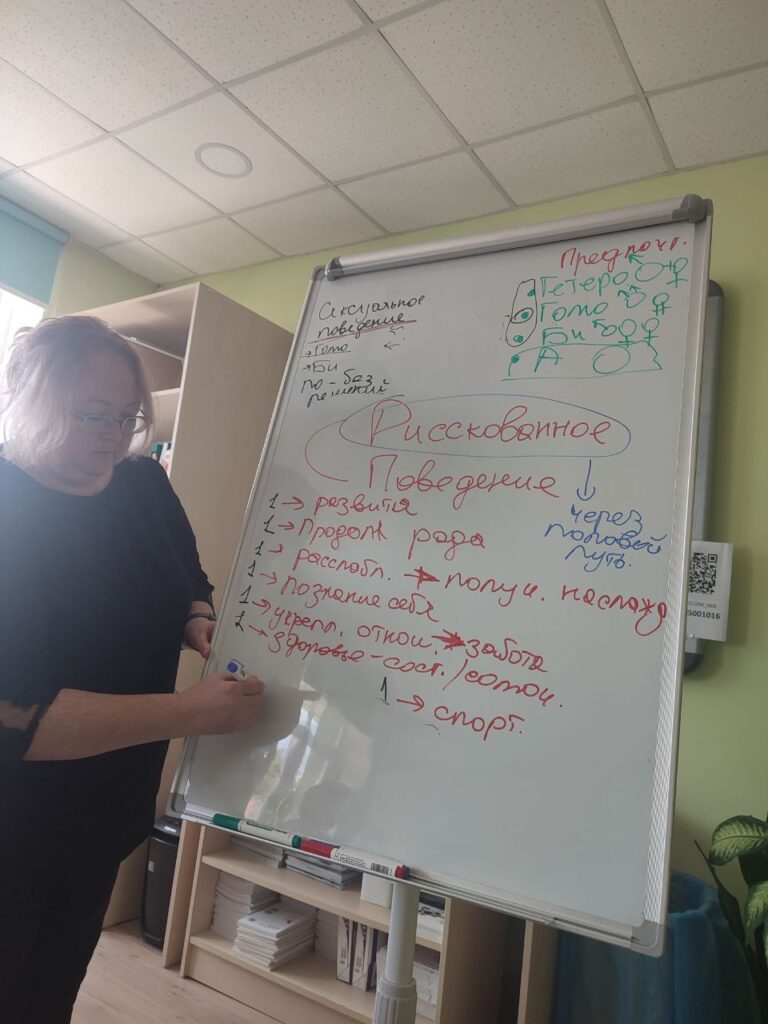 Сексуальное
поведение.
→ Гомо ←
→ Би
по - без
решений
Предпочт.
Гетеро
Гомо
Би
А
Рисскованное
Поведение
через
половой
путь.
1 → развития
1 → Продолж рада
1 → расслабл. → получ. наслажд
1 → Познание себя
1 → укрепл. отнош. → забота
2 → здоровье - сост. /
1 → спорт.
5001016